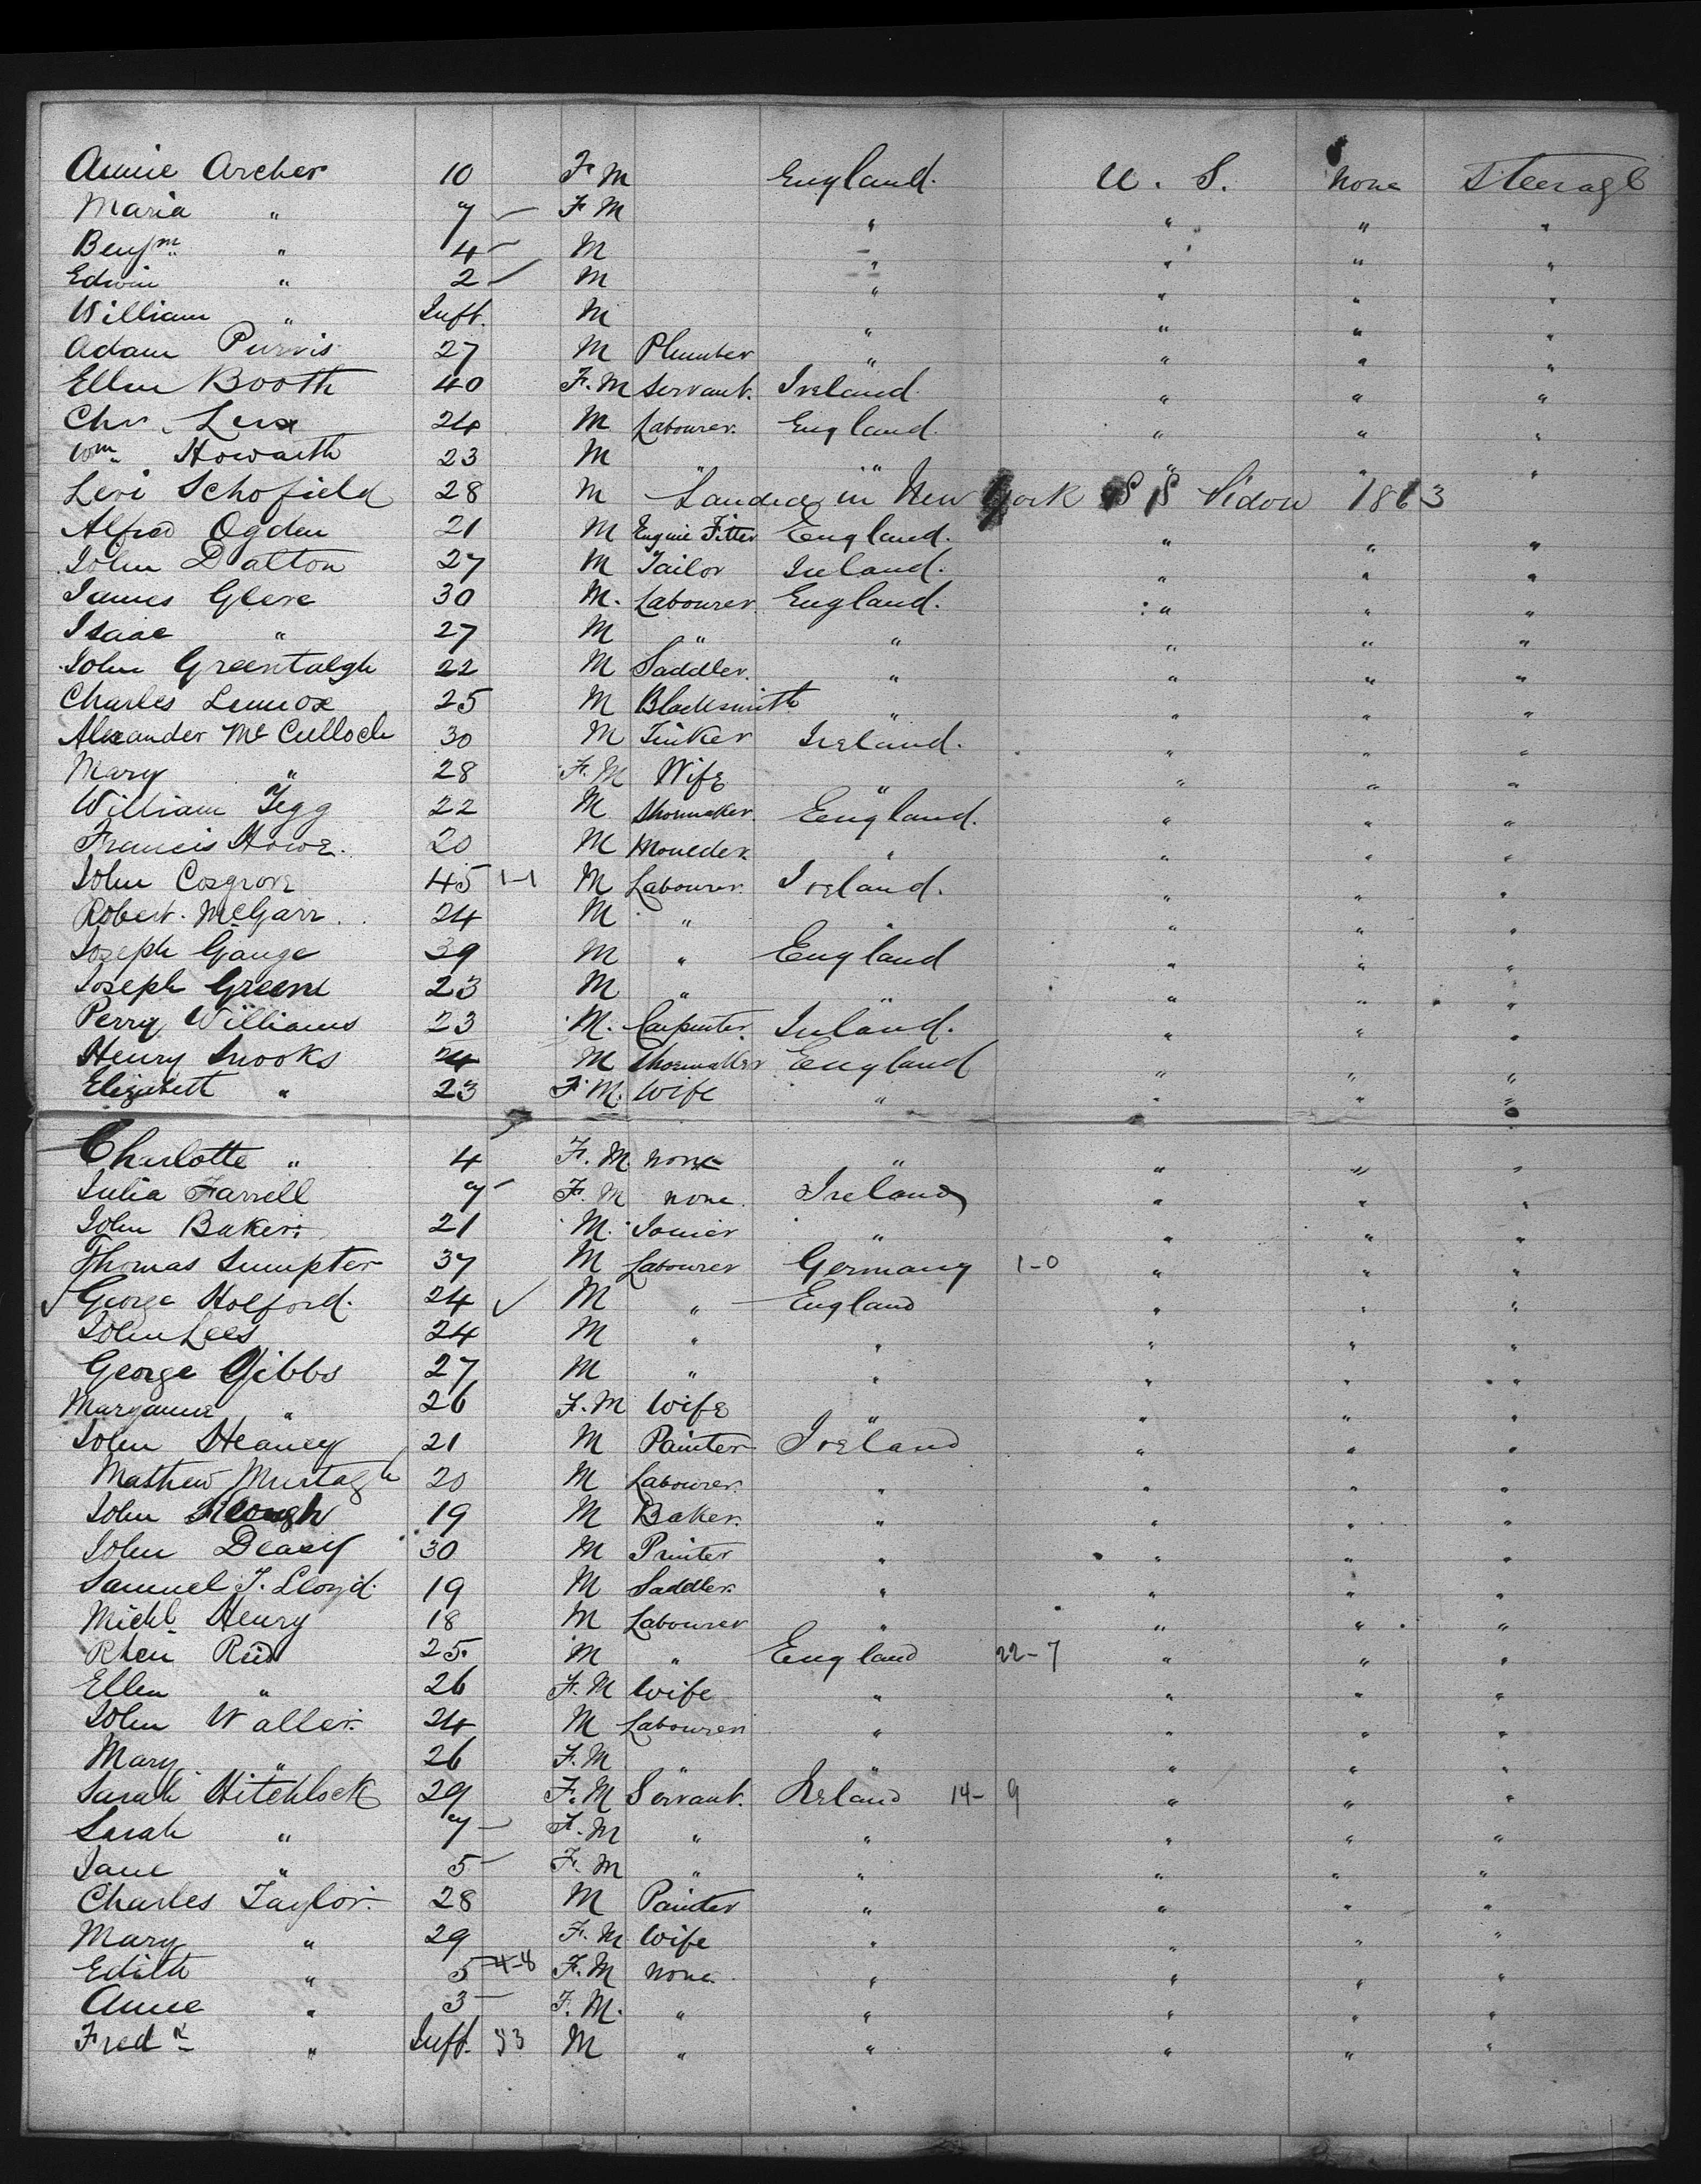 Annie Archer 10 F M England. U. S. None Steerage
Maria " 7 – F M " " " "
Benjm " 4 – M " " " "
Edwin " 2 – M " " " "
William " Inft. M " " " "
Adam Purvis 27 M Plumber " " " "
Ellen Booth 40 F. M Servant. Ireland " " "
Chr. 24 M Labourer. England " " "
Wm. Howarth 23 M " " " " "
Levi Schofield 28 M Landed in New York S S Sidon 1863
Alfred Ogden 21 M Engine Fitter England. " " "
John Dalton 27 M Tailor Ireland. " " "
James Gleve 30 M. Labourer England. " " "
Isaac " 27 M " " " " "
John Greentalgh 22 M Saddler. " " " "
Charles Lennox 25 M Blacksmith " " " "
Alexander McCulloch 30 M Tinker Ireland. " " "
Mary " 28 F. M Wife " " " "
William Tegg 22 M Shoemaker. England. " " "
Francis Howe. 20 M Moulder. " " " "
John Cosgrove 45 1-1 M Labourer. Ireland. " " "
Robert. McGarr. 24 M " " " " "
Joseph Gange 39 M " England " " "
Joseph Greene 23 M " " " " "
Perry Williams 23 M. Carpenter. Ireland. " " "
Henry Snooks 24 M Shoemaker England " " "
Elizabeth " 23 F M. Wife " " " "
Charlotte " 4 F. M. none " " " "
Julia Farrell 7 – F. M none. Ireland " " "
John Baker. 21 M. Joiner " " " "
Thomas Sumpter 37 M Labourer Germany 1-0 " " "
✓ George Holford. 24 ✓ M " England " " "
John Lees 24 M " " " " "
George Gibbs 27 M " " " " "
Maryanne " 26 F. M Wife " " " "
John Heaney 21 M Painter Ireland " " "
Mathew Murtagh 20 M Labourer. " " " "
John 19 M Baker. " " " "
John Deasy 30 M Printer " " " "
Samuel J. Lloyd. 19 M Saddler. " " " "
Michl. Henry 18 M Labourer " " " "
Reid 25. M " England 22-7 " " "
Ellen " 26 F. M Wife " " " "
John Waller. 24 M Labourer " " " "
Mary " 26 F. M " " " " "
Sarah Hitchlock 29 F. M Servant. Ireland 14-9 " " "
Sarah " 7 – F. M " " " " "
Jane " 5 – F. M " " " " "
Charles Taylor. 28 M Painter " " " "
Mary " 29 F. M Wife " " " "
Edith " 5 4-8 F. M none. " " " "
Anne " 3 – F. M. " " " " "
Fredk " Inft. 53 M " " " " "